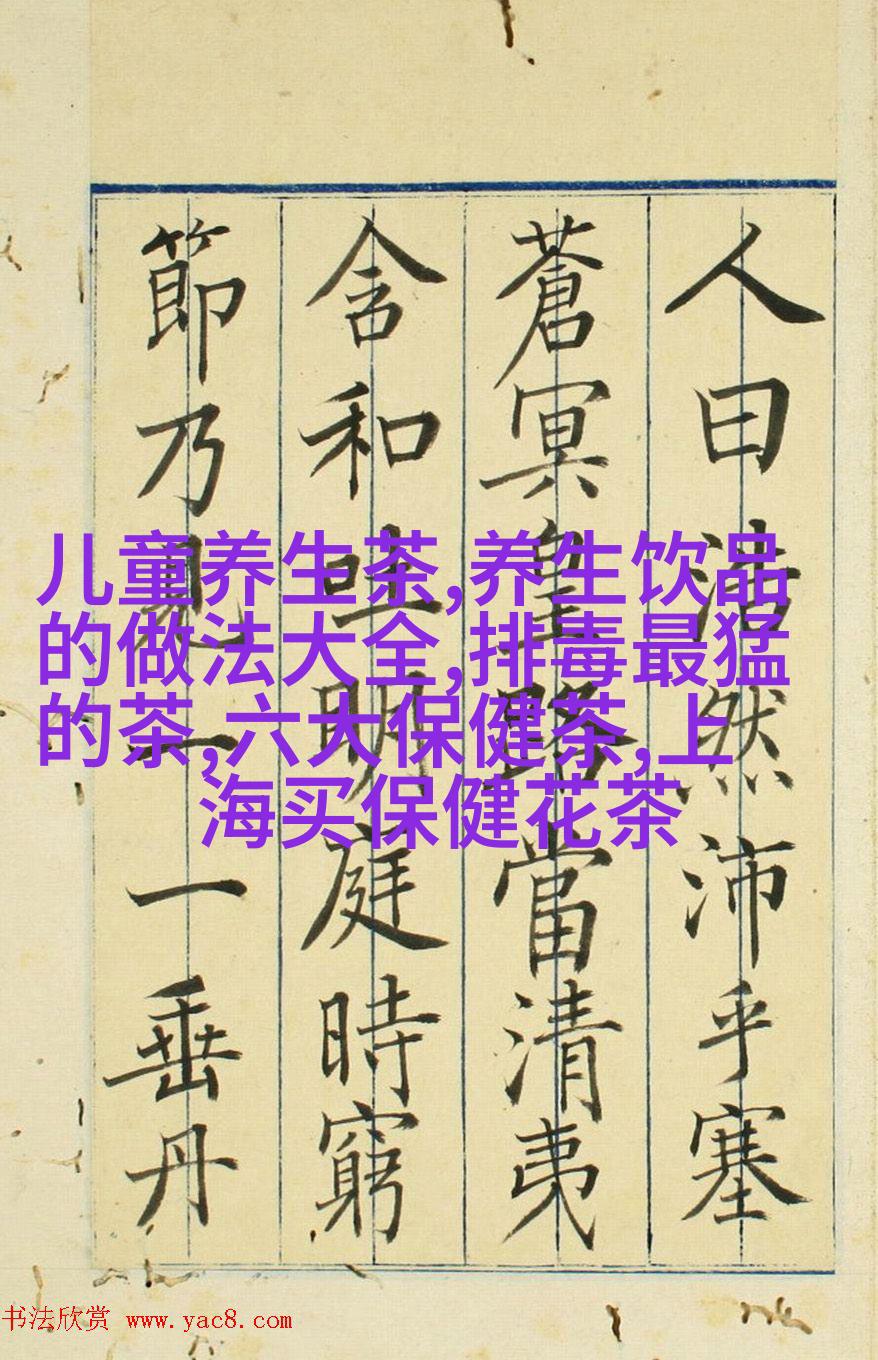 人曰浩然沛乎塞
蒼冥皇路當清夷
含和吐明庭時窮
節乃見一一垂丹
儿童养生茶,养生饮品
的做法大全,排毒最猛
的茶,六大保健茶,上
海买保健花茶
书法欣赏 www.yac8.com